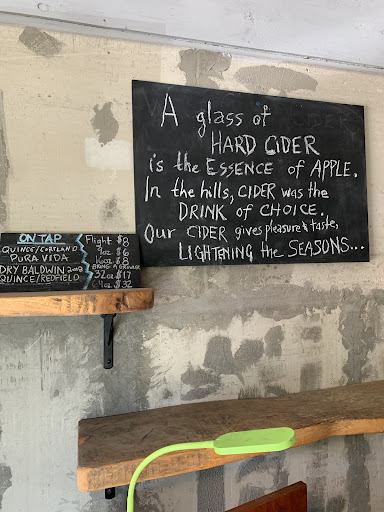 A glass of
HARD CiDER
is the ESSENCE of APPLE.
In the hills, CIDER was the
DRINK of CHOICE.
Our CIDER gives pleasure & taste,
LIGHTENING the SEASONS...
ON TAP
QUINCE/CORTLAND
PURA VIDA
DRY BALDWIN
QUINCE/REDFIELD
Flight $8
7oz $6
16oz $8
BRING A GROWLER
32oz $17
64oz $32